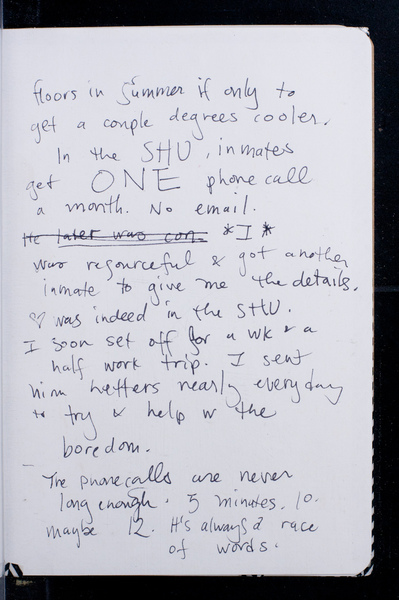 floors in summer if only to
get a couple degrees cooler.
In the SHU, inmates
get ONE phone call
a month. No email.
He later was con- *I*
was resourceful & got another
inmate to give me the details.
♡ was indeed in the SHU.
I soon set off for a wk & a
half work trip. I sent
him letters nearly everyday
to try & help w the
boredom.
The phonecalls are never
long enough. 5 minutes. 10.
maybe 12. It's always a race
of words.